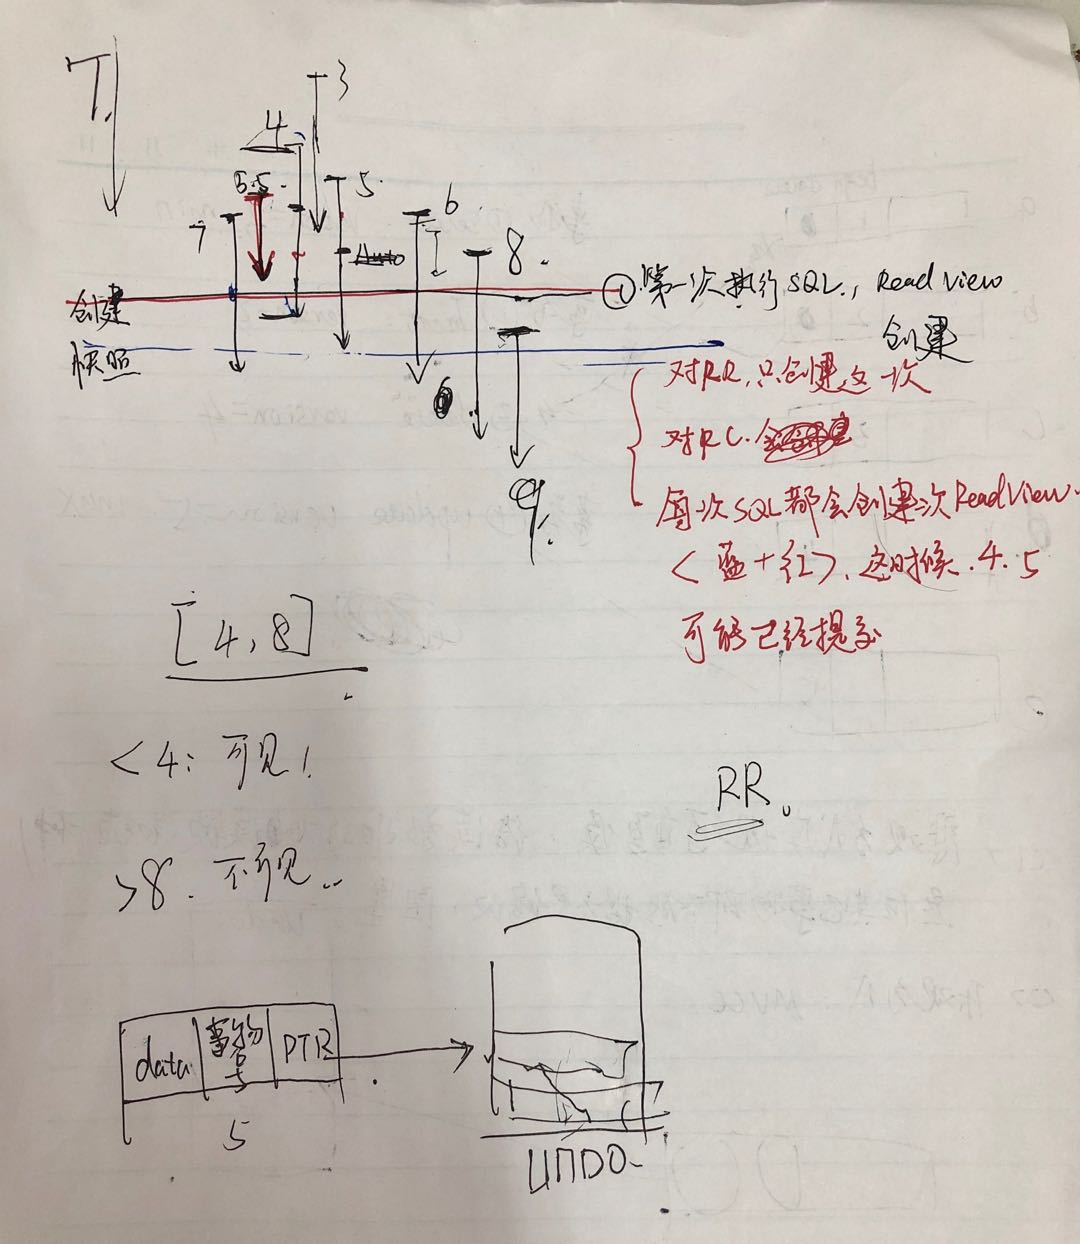 T.
3
4
5.5.
5.
7
6
8.
创建
快照
① 第一次执行SQL, Read View
创建
对RR,只创建这一次
对RC.
每次SQL都会创建次ReadView.
<蓝+红>, 这时候.4.5
可能已经提交
6
9.
[4,8]
<4: 可见!
>8. 不可见..
RR.
data
事物号
PTR
5
UNDO